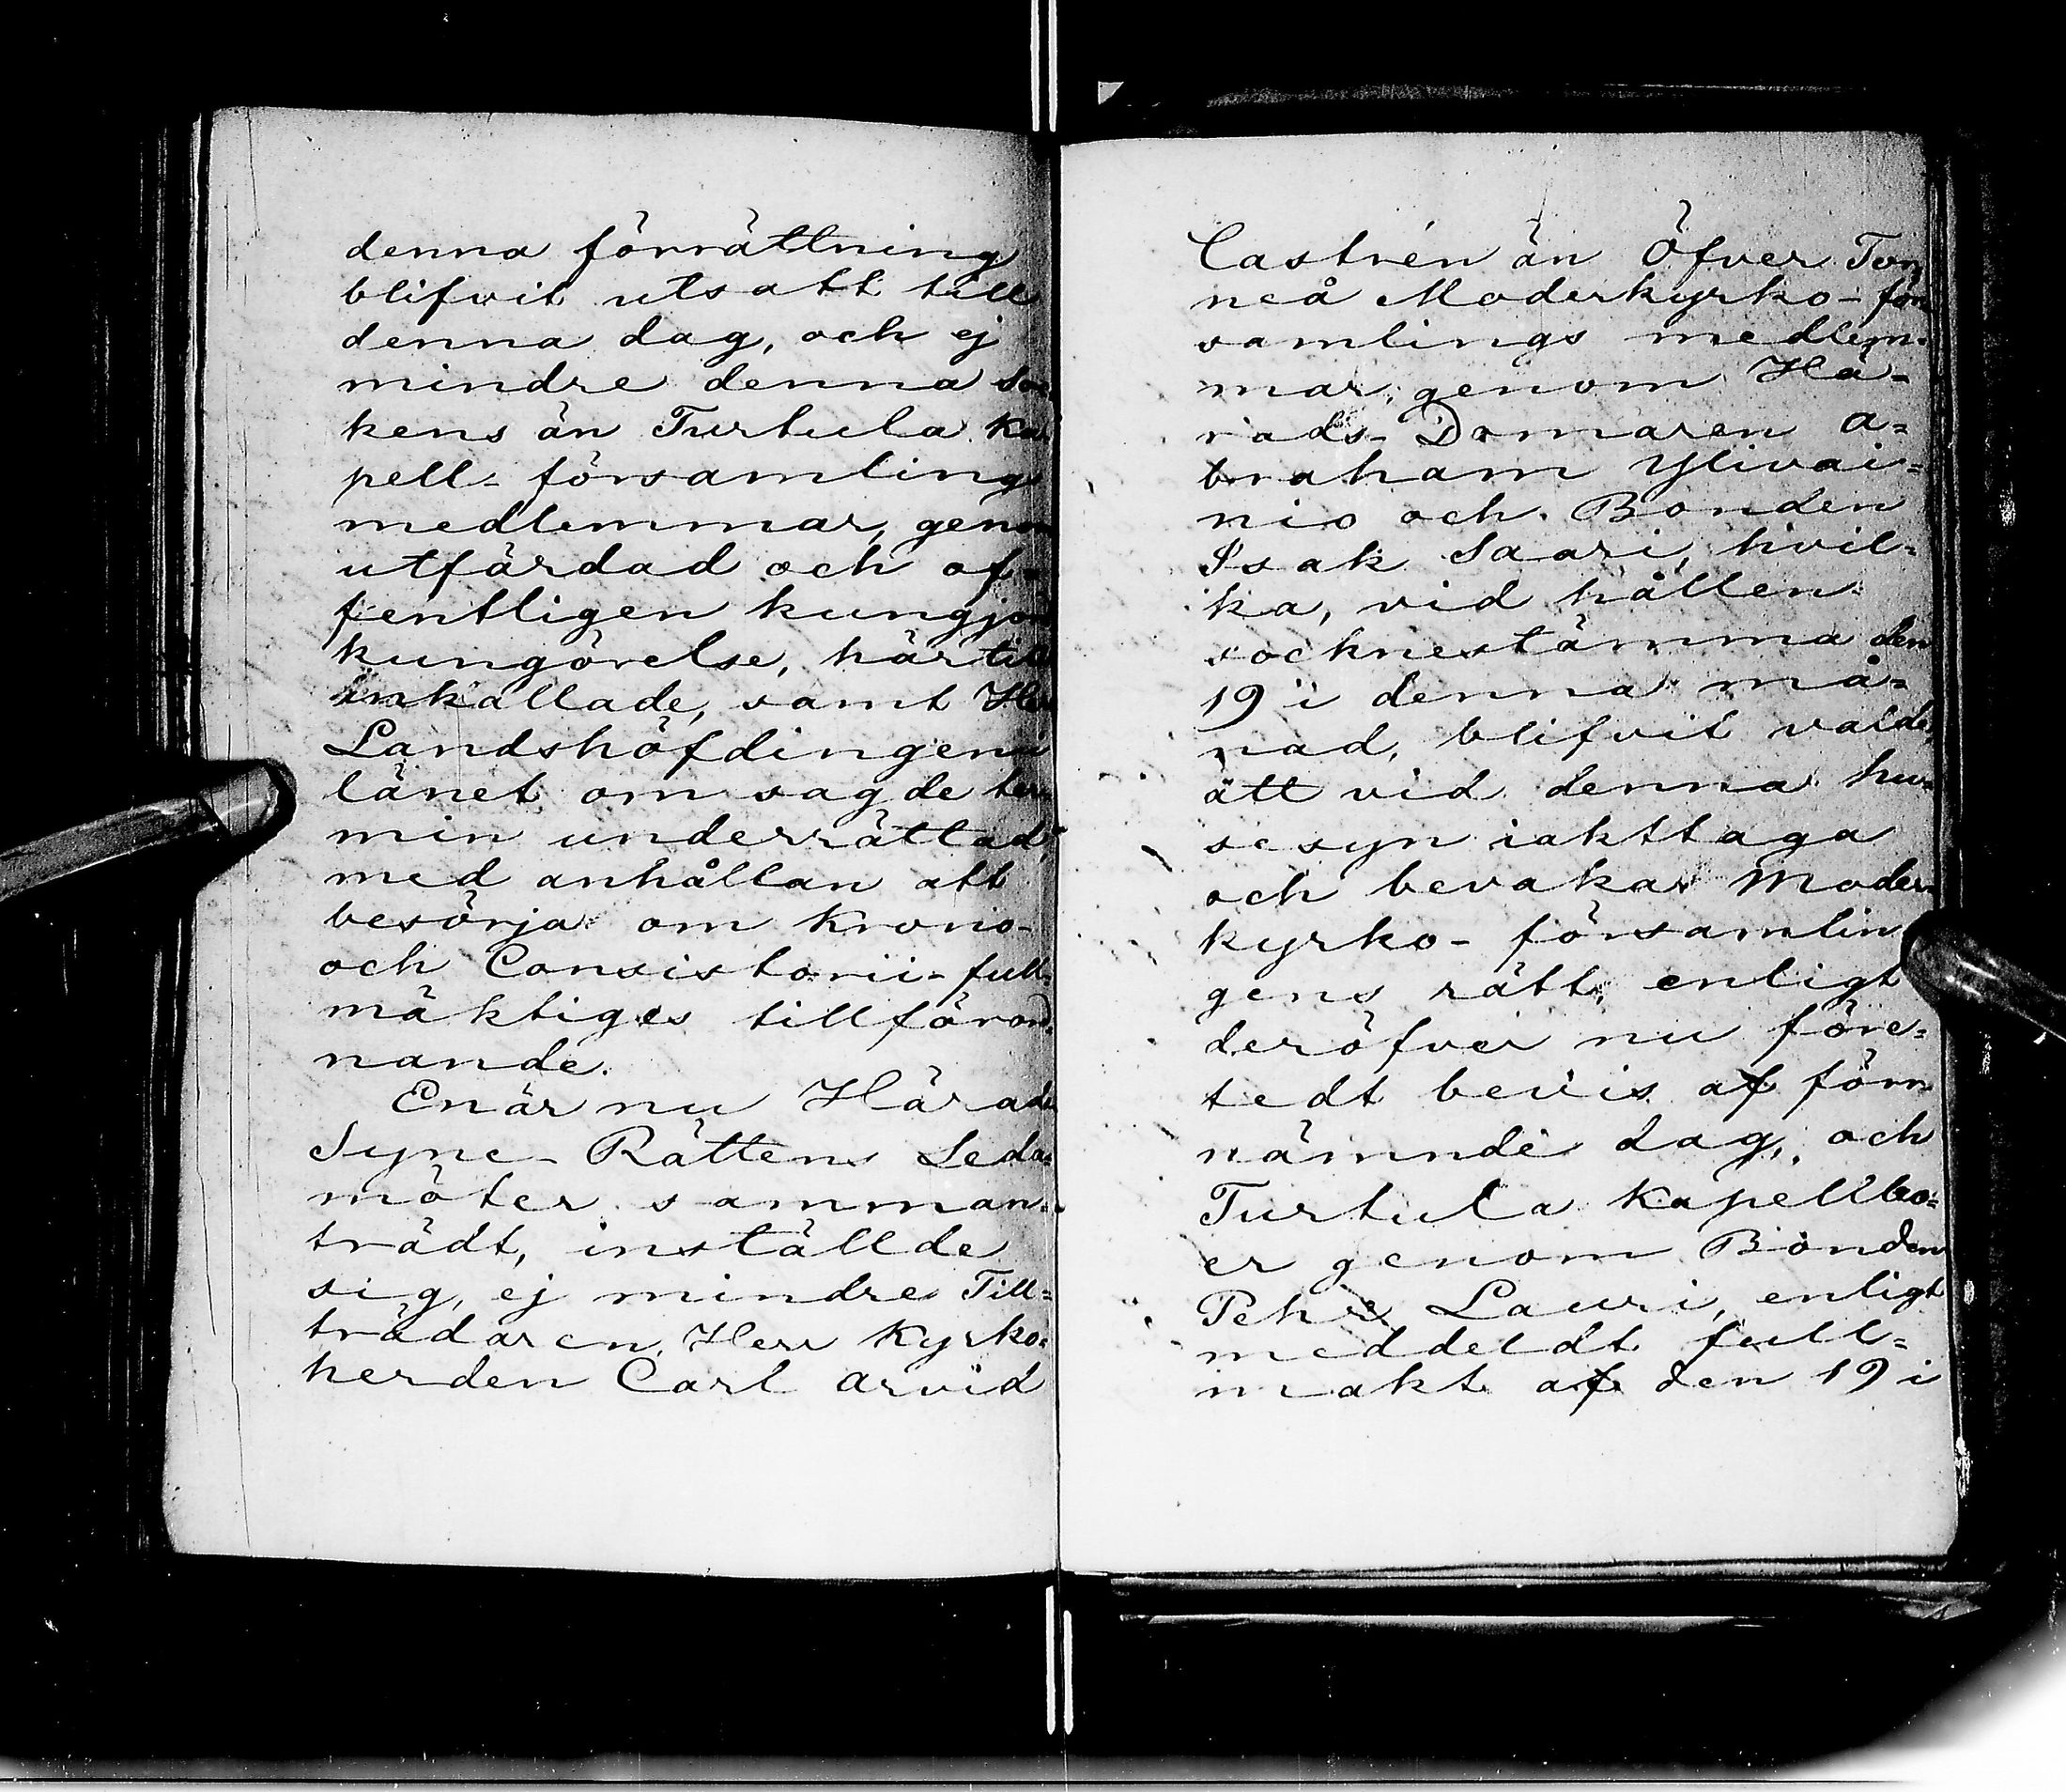 denna förrättning
blifvit utsatt till
denna dag, och ej
mindre denna soc
kens än Turtula Ka
pell-försambling
medlemmar, genom
utfärdad och of-
fentligen kungjord
kungörelse, härtill
inkallade, samt Herr
Landshöfdingen i
länet om sagde ter-
min underrättad,
med anhållan att
besörja om Krono-
och Consistorii-full-
mäktiges tillförord-
nande.
Enär nu Härads
Syne-Rättens Leda-
möter samman-
trädt, inställde
sig, ej mindre Till-
trädaren, Herr Kyrko-
herden Carl Arvid
Castrén än Öfver Tor
neå Moderkyrko-för
samlings medlem-
mar, genom Hä-
rads-Domaren A-
braham Ylivai-
nio och Bonden
Isak Saari, hvil-
ka, vid hållen
socknestämma den
19 i denna må-
nad, blifvit valde,
att vid denna hu-
sesyn iakttaga
och bevaka Moder-
kyrko-församlin
gens rätt, enligt
deröfver nu före-
tedt bevis af förr
nämnde dag, och
Turtula Kapellbo-
er genom Bonden
Pehr Lauri, enligt
meddeldt full-
makt af den 19 i